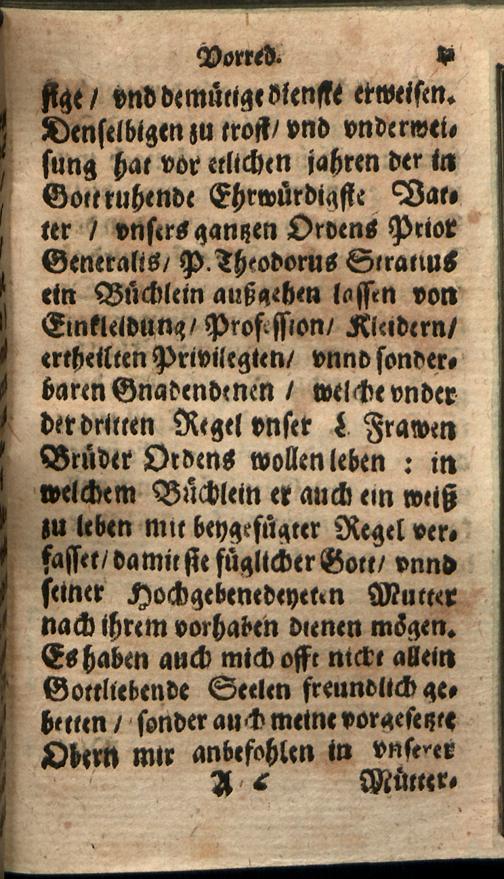 Vorred.
stge / vnd demütige dienste erweisen.
Denselbigen zu trost / vnd vnderwei-
sung hat vor etlichen jahren der in
Gott ruhende Ehrwürdigste Vat-
ter / vnsers gantzen Ordens Prior
Generalis / P. Theodorus Stratius
ein Büchlein außgehen lassen von
Einkleidung / Profession / Kleidern /
ertheilten Privilegien / vnnd sonder-
baren Gnaden denen / welche vnder
der dritten Regel vnser L. Frawen
Brüder Ordens wollen leben : in
welchem Büchlein er auch ein weiß
zu leben mit beygefügter Regel ver-
fasset / damit sie füglicher Gott / vnnd
seiner Hochgebenedeyeten Mutter
nach ihrem vorhaben dienen mögen.
Es haben auch mich offt nicht allein
Gottliebende Seelen freundlich ge-
betten / sonder auch meine vorgesetzte
Obern mir anbefohlen in vnserer
A Mütter-